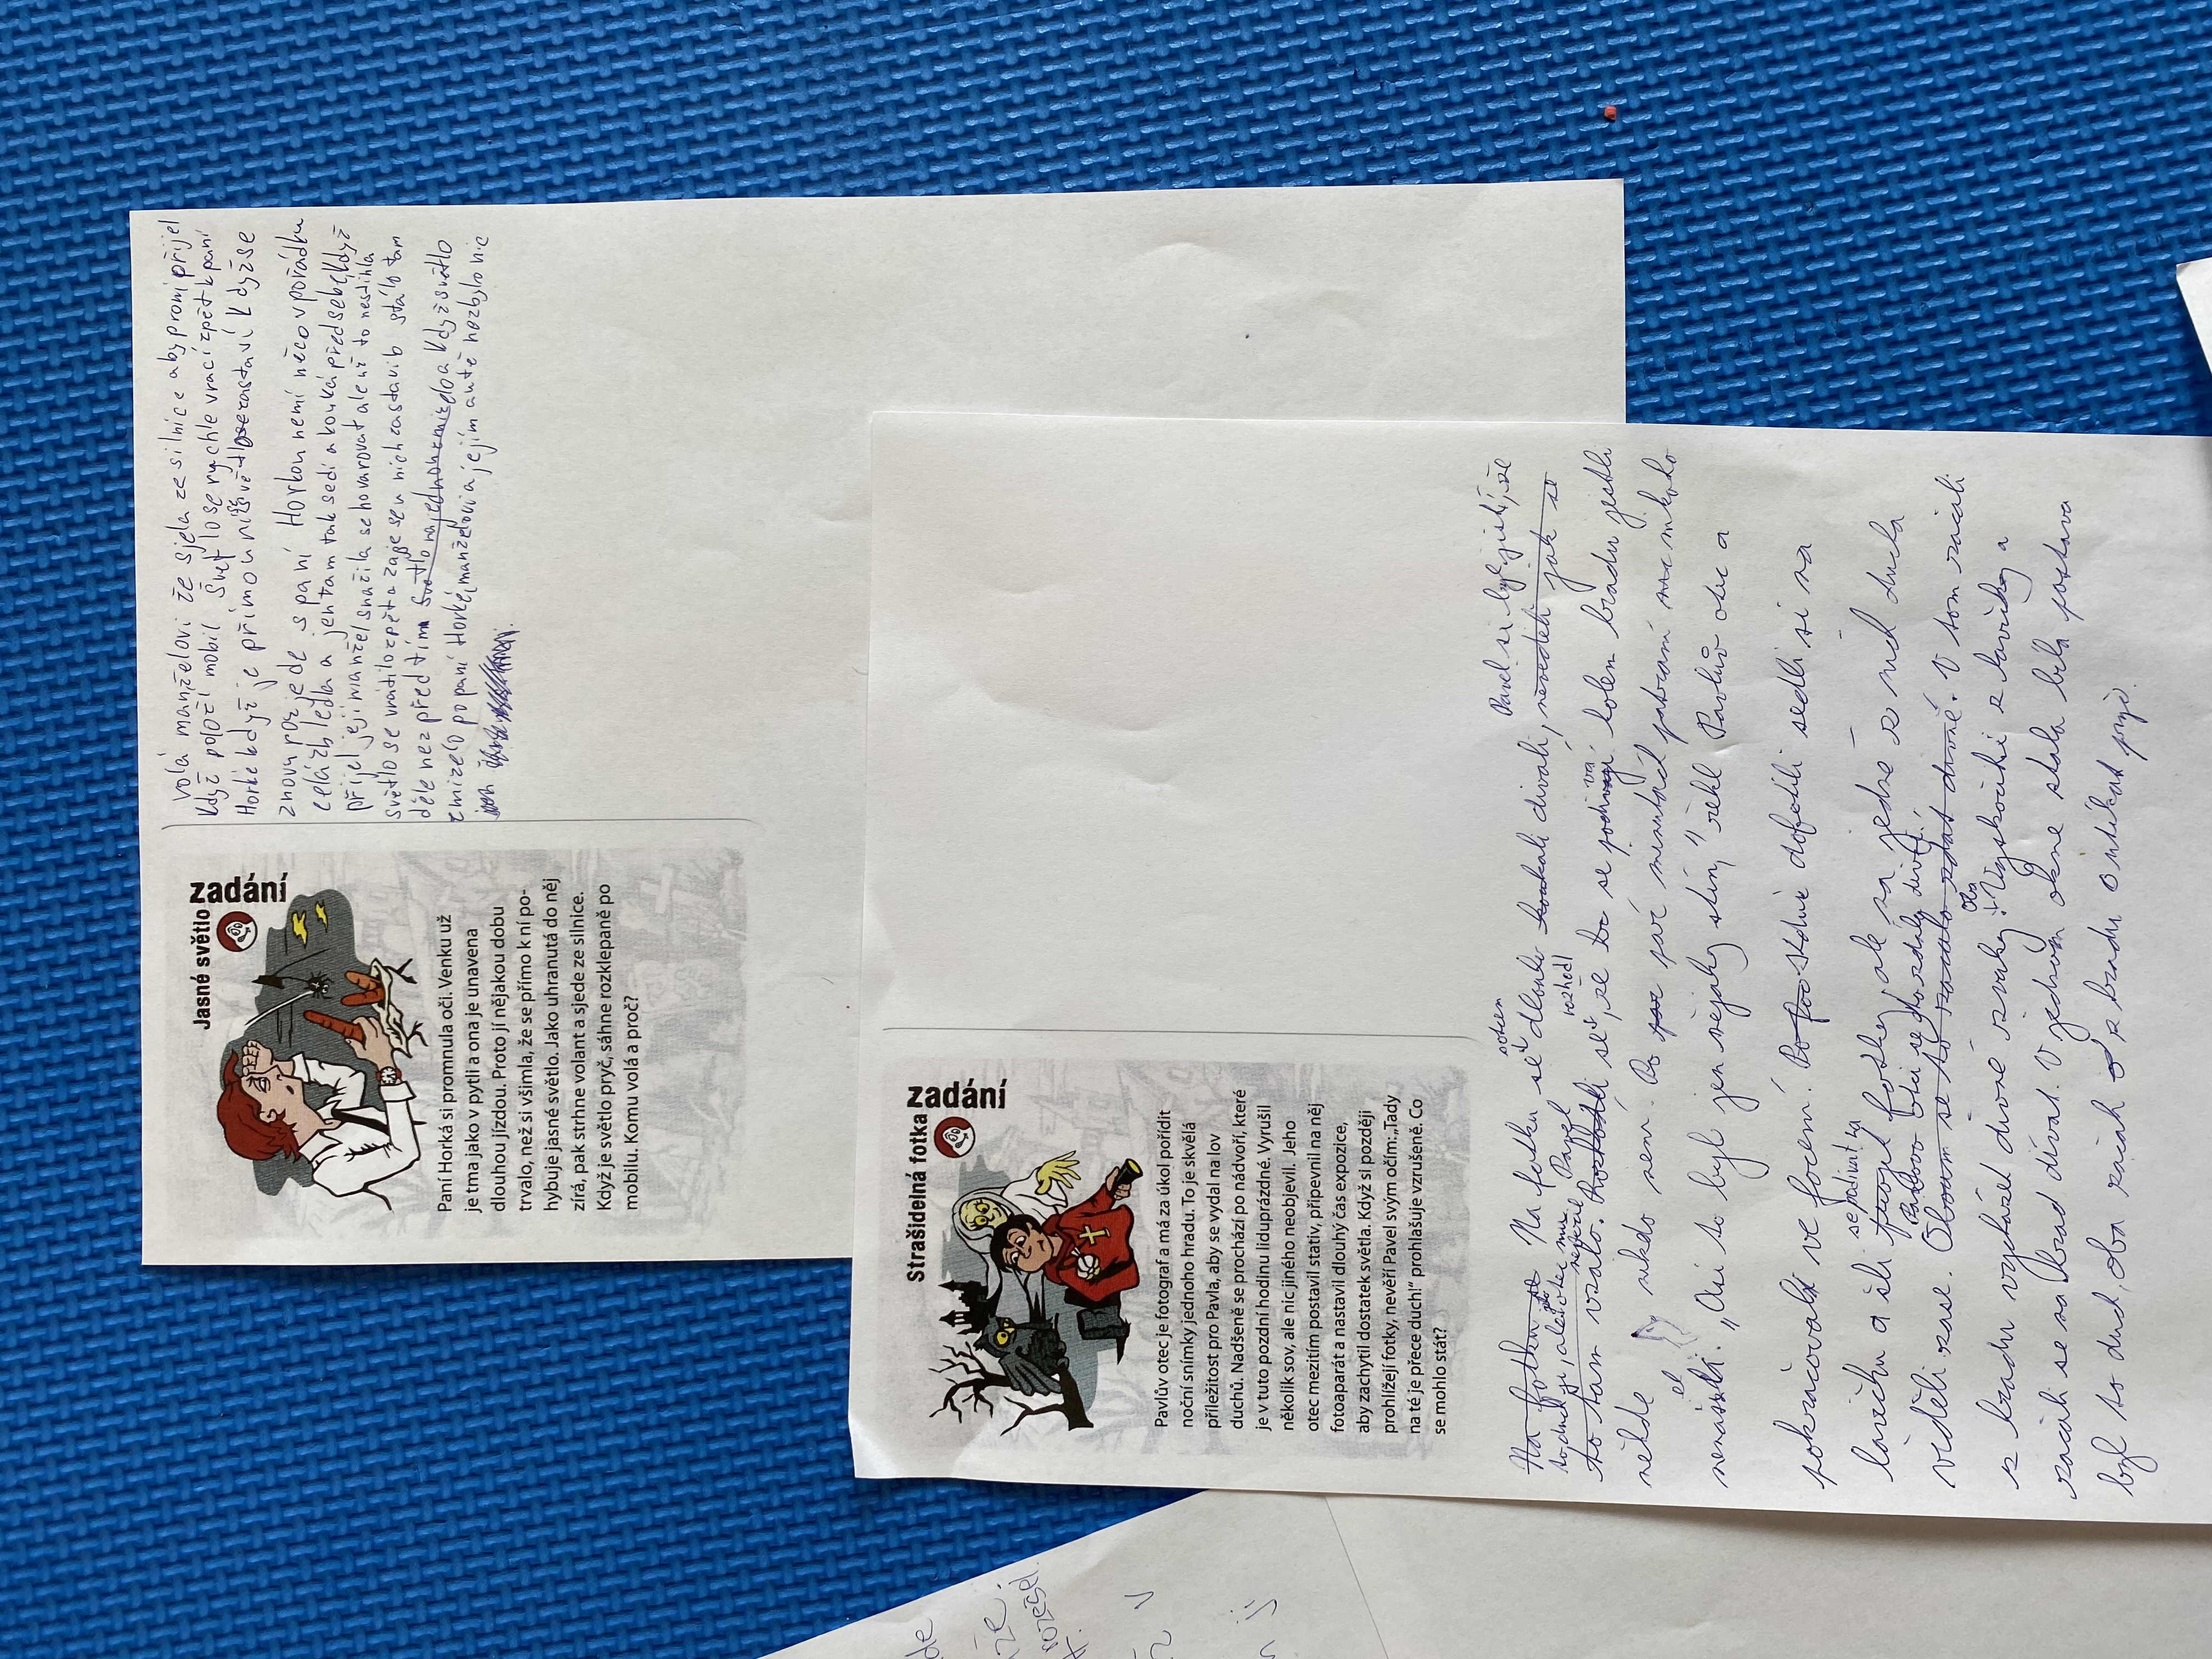 Jasné světlo
zadání
Paní Horká si promnula oči. Venku už
je tma jako v pytli a ona je unavena
dlouhou jízdou. Proto jí nějakou dobu
trvalo, než si všimla, že se přímo k ní po-
hybuje jasné světlo. Jako uhranutá do něj
zírá, pak strhne volant a sjede ze silnice.
Když je světlo pryč, sáhne rozklepaně po
mobilu. Komu volá a proč?
volá manželovi že sjela ze silnice a aby pro ni přijel
když položí mobil Světlo se rychle vrací zpět k paní
Horké když je přímo u ní zastaví když se
znovu rozjede s paní Horkou není něco v pořádku
celá zbledla a jen tam tak sedí a kouká před sebe když
přijel její manžel snažila se ho varovat ale už to nestihla
světlo se vrátilo zpět a zase se u nich zastavilo stálo tam
déle než před tím Světlo najednou zmizelo a když světlo
zmizelo po paní Horké, manželovi a jejím autě nezbylo nic
Strašidelná fotka
zadání
Pavlův otec je fotograf a má za úkol pořídit
noční snímky jednoho hradu. To je skvělá
příležitost pro Pavla, aby se vydal na lov
duchů. Nadšeně se prochází po nádvoří, které
je v tuto pozdní hodinu liduprázdné. Vyrušil
několik sov, ale nic jiného neobjevil. Jeho
otec mezitím postavil stativ, připevnil na něj
fotoaparát a nastavil dlouhý čas expozice,
aby zachytil dostatek světla. Když si později
prohlížejí fotky, nevěří Pavel svým očím: „Tady
na té je přece duch!“ prohlašuje vzrušeně. Co
se mohlo stát?
Na fotku se s otcem dlouho koukali dívali, nevěděli jak se Pavel si byl jistý, že
to duch je, ale otec mu nevěřil Pavel
to tam vzalo. Rozhodli rozhodl se, že se podívá kolem hradu jestli
někde nikdo není. Po pár minutách pátrání nikoho
nenašel. „Asi to byl jen nějaký stín,“ řekl Pavlův otec a
pokračovali ve focení. Po dofocení sedli si na
lavičku a šli se podívat na fotky, ale na jedné z nich ducha
viděli zase. Oboum se to zdálo divné. V tom začali
z hradu vycházet divné zvuky. Oba vyskočili z lavičky a
začali se na hrad dívat. V jednom okně stála bílá postava
byl to duch, oba začali z hradu utíkat pryč.